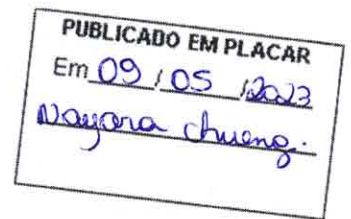 PUBLICADO EM PLACAR
Em 09 / 05 / 2023
Nayara Chueng.